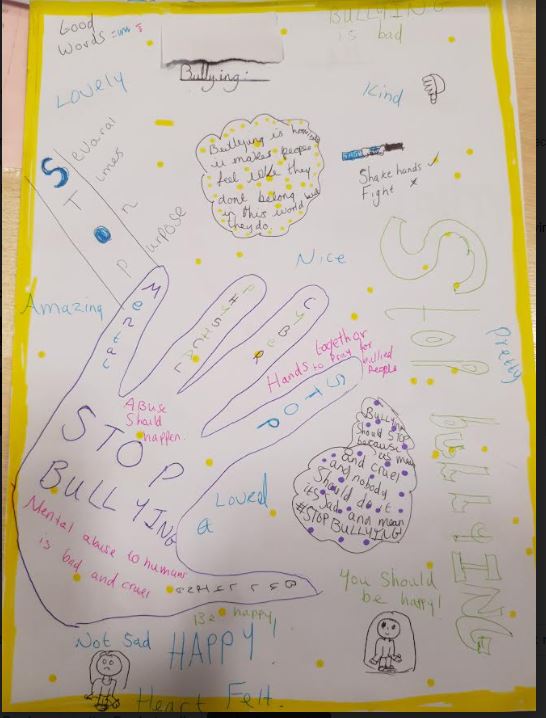 Good
Words
BULLYING
is bad
Bullying:
Lovely
Kind
Several
Times
On
Purpose
Bullying is
it makes people
feel like they
dont belong
in this world but
they do.
Shake hands ✓
Fight x
Nice
Stop
BULLYING
Pretty
Amazing
Mental
PHYSICAL
CYBER
Hands together
to Pray for
bullied
People
STOP
ABuse
Should
happen.
STOP
BULLYING
Bullying
should STOP
because
its mean
and cruel
and nobody
Should do it
its sad and mean
#STOP BULLYING
Loved
Mental abuse to humans
is bad and cruel
Be happy!
You should
be happy!
Not Sad
HAPPY!
Heart Felt.